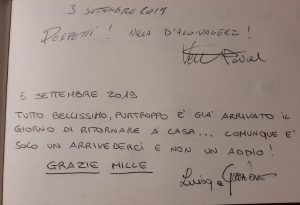 3 SETTEMBRE 2019
PERFETTI! NULLA D'AGGIUNGERE!
5 SETTEMBRE 2019
TUTTO BELLISSIMO, PURTROPPO E' GIÀ ARRIVATO IL
GIORNO DI RITORNARE A CASA... COMUNQUE E'
SOLO UN ARRIVEDERCI E NON UN ADDIO!
GRAZIE MILLE
Luisa e